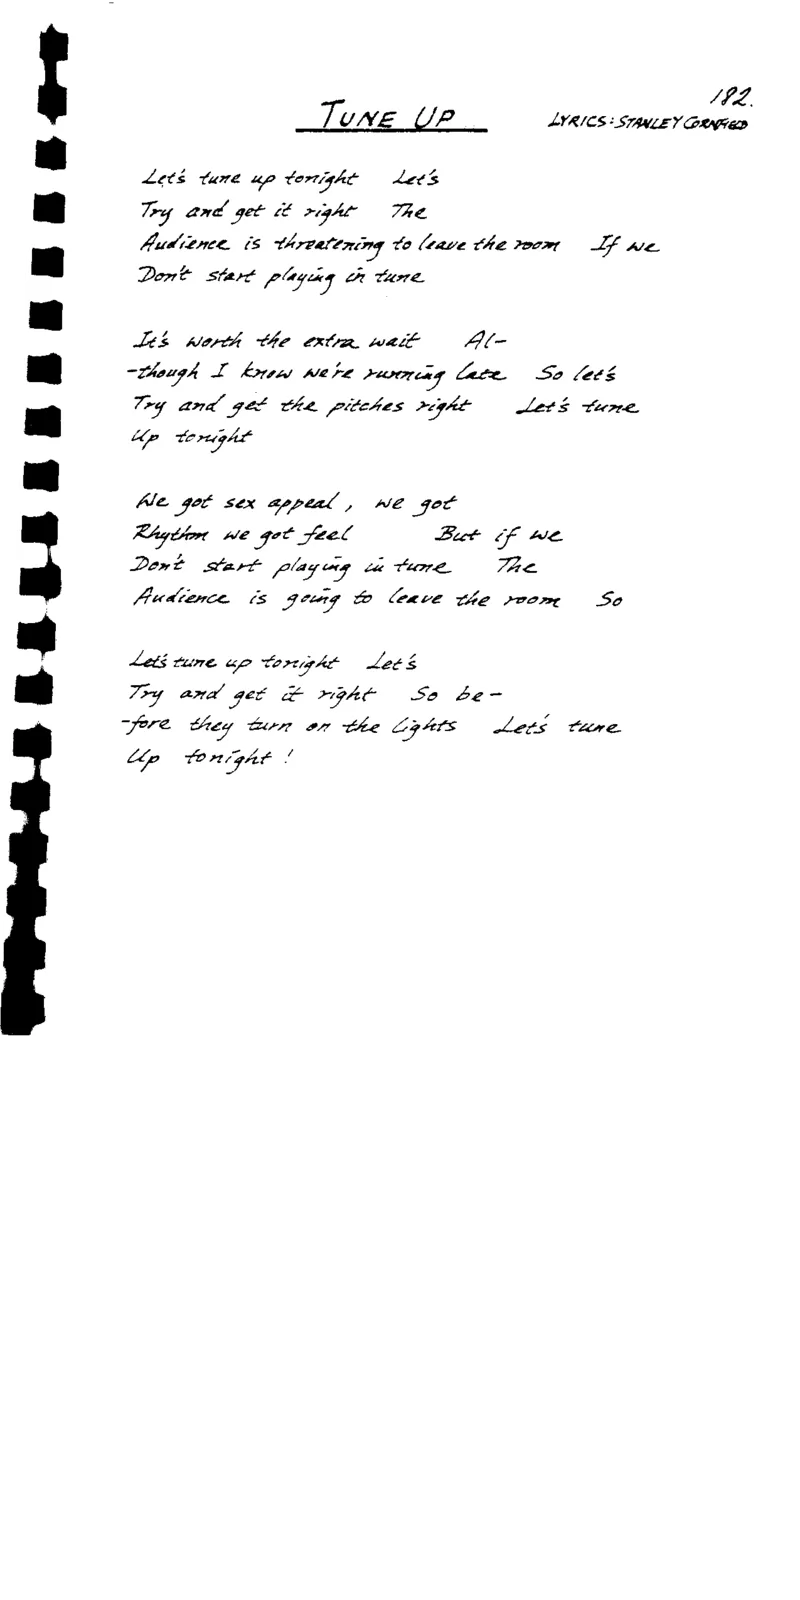 182.
TUNE UP
LYRICS: STANLEY CORNFIELD
Let's tune up tonight Let's
Try and get it right The
Audience is threatening to leave the room If we
Don't start playing in tune
It's worth the extra wait Al-
-though I know we're running late So let's
Try and get the pitches right Let's tune
Up tonight
We got sex appeal, we got
Rhythm we got feel But if we
Don't start playing in tune The
Audience is going to leave the room So
Let's tune up tonight Let's
Try and get it right So be-
-fore they turn on the lights Let's tune
Up tonight!